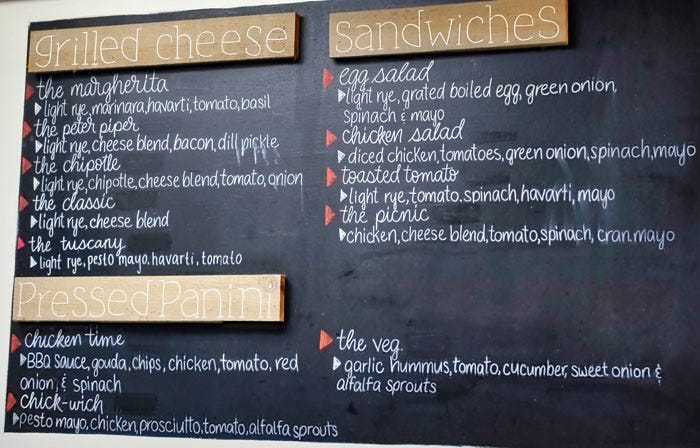 grilled cheese
the margherita
light rye, marinara, havarti, tomato, basil
the peter piper
light rye, cheese blend, bacon, dill pickle
the chipotle
light rye, chipotle, cheese blend, tomato, onion
the classic
light rye, cheese blend
the tuscany
light rye, pesto mayo, havarti, tomato
Pressed Panini
chicken time
BBQ sauce, gouda, chips, chicken, tomato, red
onion, & spinach
chick-wich
pesto mayo, chicken, prosciutto, tomato, alfalfa sprouts
sandwiches
egg salad
light rye, grated boiled egg, green onion,
spinach & mayo
chicken salad
diced chicken, tomatoes, green onion, spinach, mayo
toasted tomato
light rye, tomato, spinach, havarti, mayo
the picnic
chicken, cheese blend, tomato, spinach, cran mayo
the veg
garlic hummus, tomato, cucumber, sweet onion &
alfalfa sprouts